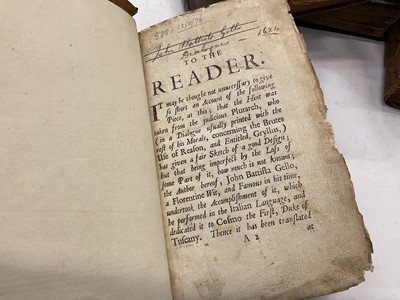 John Battista Gello
Dialogues
1686
TO THE
READER.
IT may be thought not unnecessary to give
so short an Account of the following
Piece, as this; that the Hint was
taken from the judicious Plutarch, who
(in a Dialogue usually printed with the
rest of his Morals, concerning the Brutes
Use of Reason, and Entitled, Gryllus,)
has given a fair Sketch of a good Design;
but that being imperfect by the Loss of
some Part of it, how much is not known;
the Author hereof, John Battista Gello,
a Florentine Wit, and Famous in his time,
undertook the Accomplishment of it, which
he performed in the Italian Language, and
dedicated it to Cosmo the First, Duke of
Tuscany. Thence it has been translated
A 2 at